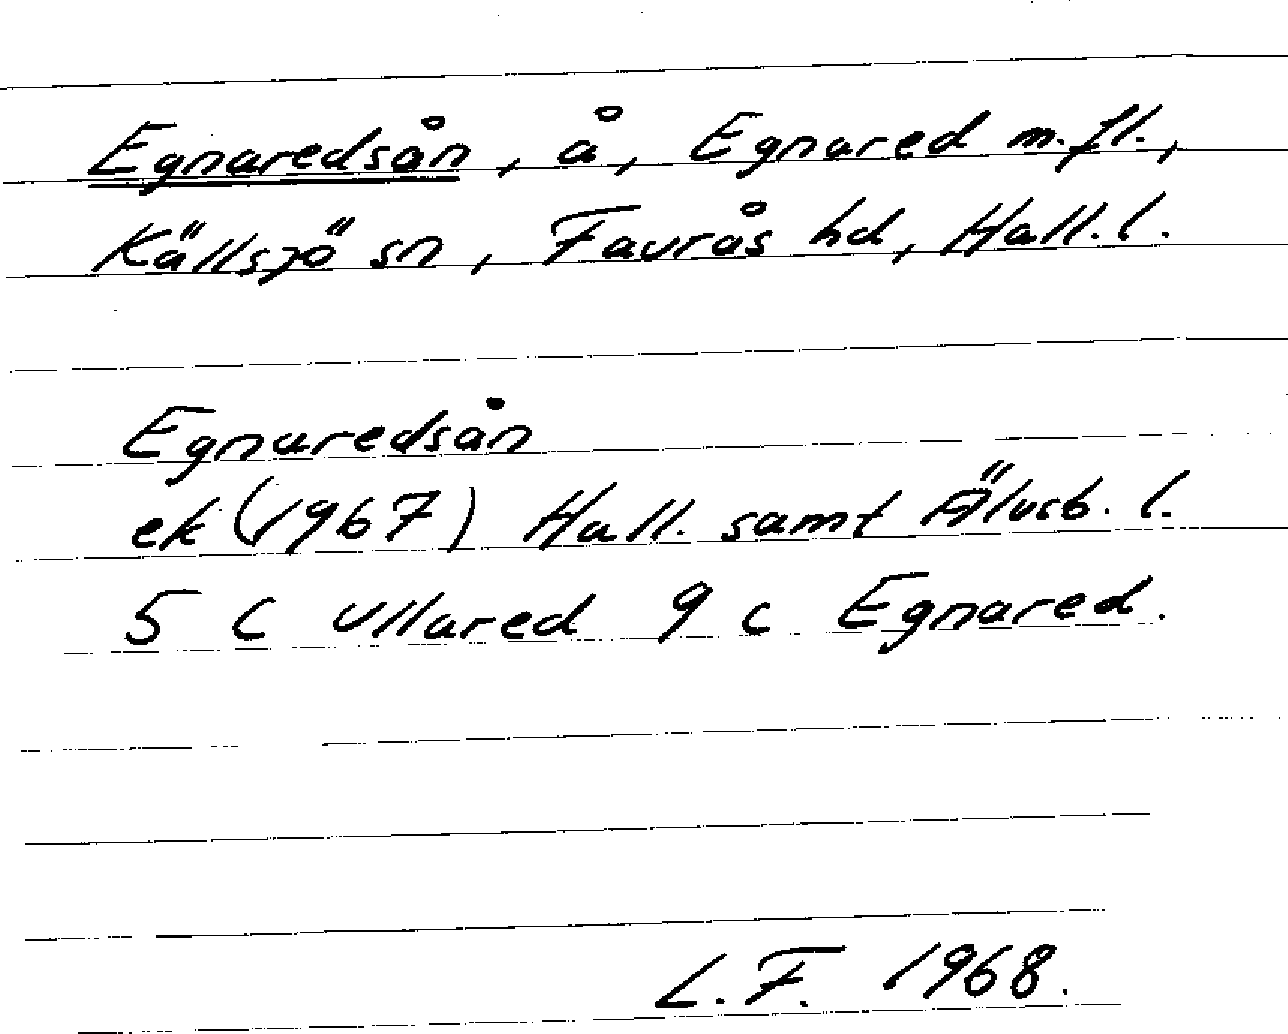 Egnaredsån, å, Egnared m.fl.,
Källsjö sn, Faurås hd, Hall. l.
Egnaredsån
ek (1967) Hall. samt Älvsb. l.
5 C Ullared 9 c Egnared.
L.F. 1968.